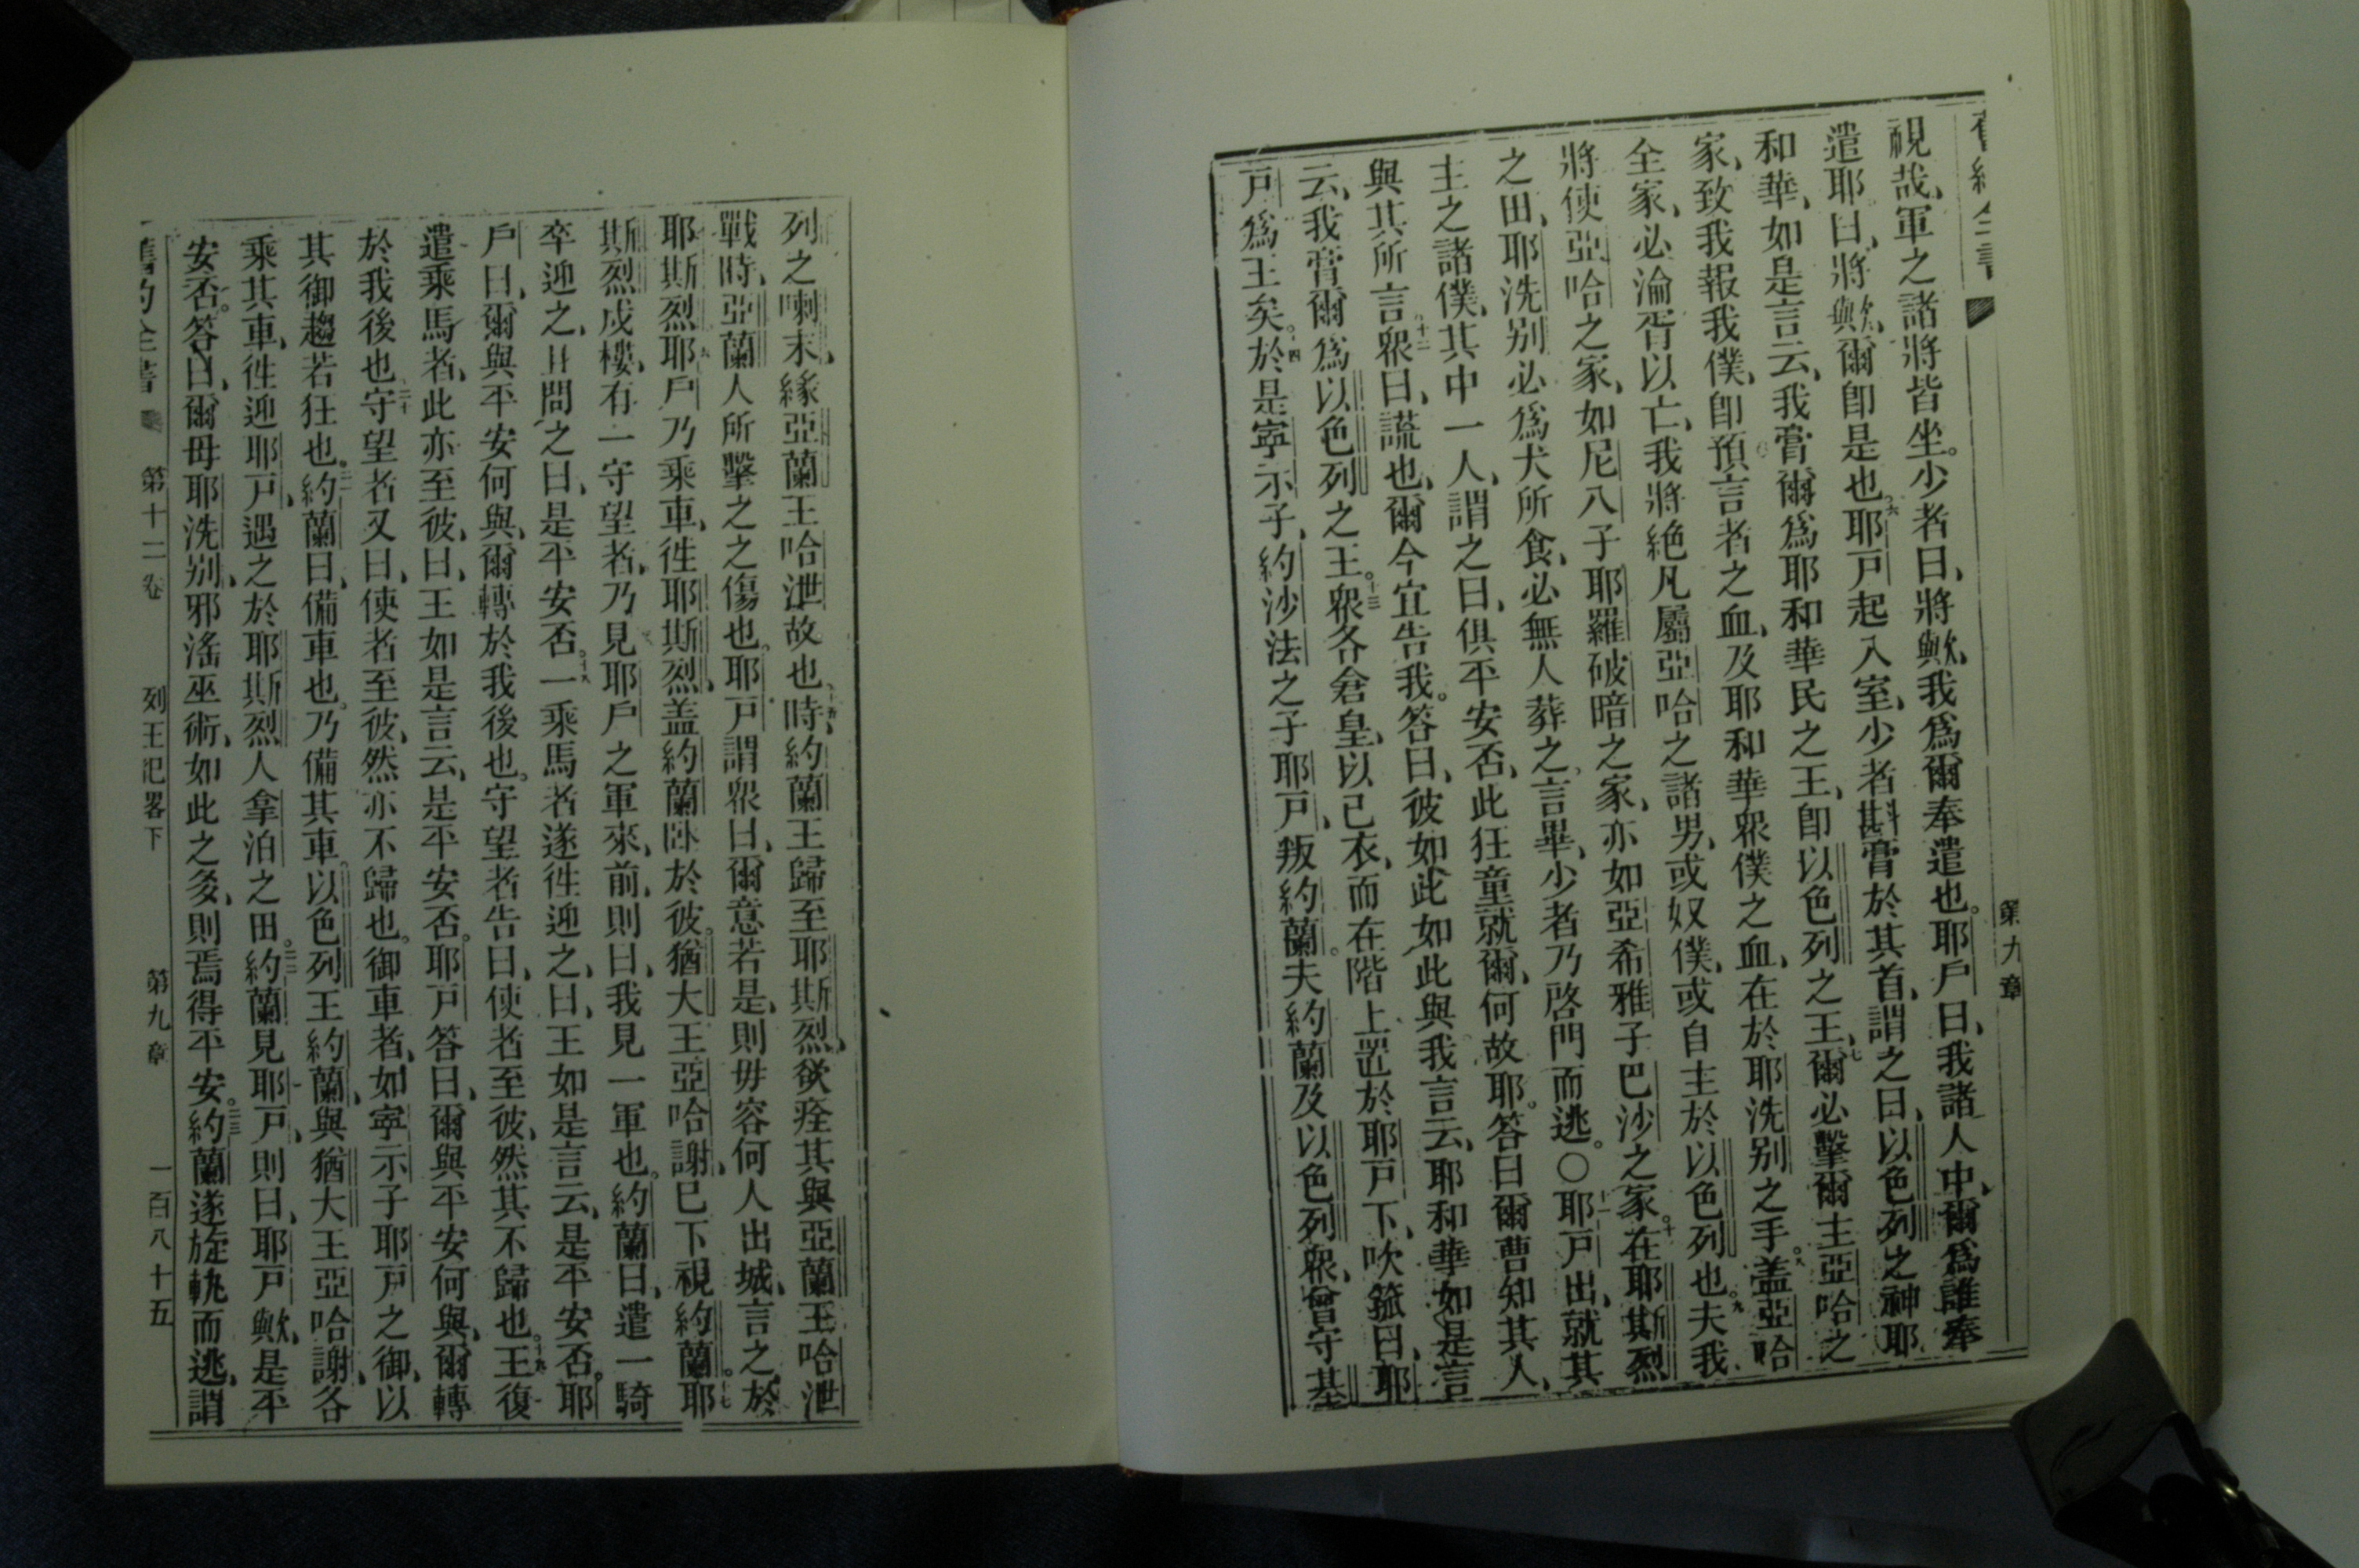 舊約全書 第九章
視哉、軍之諸將皆坐。少者曰、將歟、我爲爾奉遣也。耶戶曰、我諸人中、爾爲誰奉
遣耶、曰、將歟、爾卽是也。六耶戶起入室、少者斟膏於其首、謂之曰、以色列之神耶
和華、如是言云、我膏爾爲耶和華民之王、卽以色列之王、七爾必擊爾主亞哈之
家、致我報我僕、卽預言者之血、及耶和華眾僕之血、在於耶洗别之手。八盖亞哈
全家、必淪胥以亡、我將絕凡屬亞哈之諸男、或奴僕、或自主於以色列也。九夫我
將使亞哈之家、如尼八子耶羅破暗之家、亦如亞希雅子巴沙之家。十在耶斯烈
之田、耶洗别必爲犬所食、必無人葬之、言畢、少者乃啓門而逃。〇十一耶戶出、就其
主之諸僕、其中一人、謂之曰、俱平安否、此狂童就爾、何故耶。答曰爾曹知其人、
與其所言。十二眾曰、謊也、爾今宜告我。答曰、彼如此如此與我言云、耶和華如是言
云、我膏爾爲以色列之王。十三眾各倉皇、以己衣、而在階上置於耶戶下、吹箛曰、耶
戶爲王矣。十四於是寧示子、約沙法之子耶戶、叛約蘭。夫約蘭及以色列眾、曾守基
列之喇末、緣亞蘭王哈泄故也、十五時、約蘭王歸至耶斯烈、欲痊其與亞蘭王哈泄
戰時、亞蘭人所擊之之傷也。耶戶謂眾曰、爾意若是、則毋容何人出城、言之於
耶斯烈。十六耶戶乃乘車、徃耶斯烈、盖約蘭卧於彼。猶大王亞哈謝、已下視約蘭。十七耶
斯烈戍樓、有一守望者、乃見耶戶之軍來前、則曰、我見一軍也。約蘭曰、遣一騎
卒迎之、且問之曰、是平安否。十八一乘馬者遂徃迎之、曰、王如是言云、是平安否。耶
戶曰、爾與平安何與、爾轉於我後也。守望者告曰、使者至彼、然其不歸也。十九王復
遣乘馬者、此亦至彼、曰、王如是言云、是平安否。耶戶答曰、爾與平安何與、爾轉
於我後也。二十守望者又曰、使者至彼、然亦不歸也。御車者、如寧示子耶戶之御、以
其御趨若狂也。二一約蘭曰、備車也。乃備其車。以色列王約蘭、與猶大王亞哈謝、各
乘其車、徃迎耶戶、遇之於耶斯烈人拿泊之田。二二約蘭見耶戶、則曰、耶戶歟、是平
安否。答曰、爾毋耶洗别、邪滛巫術、如此之多、則焉得平安。二三約蘭遂旋軌而逃、謂
舊約全書 第十二卷 列王記畧下 第九章 一百八十五